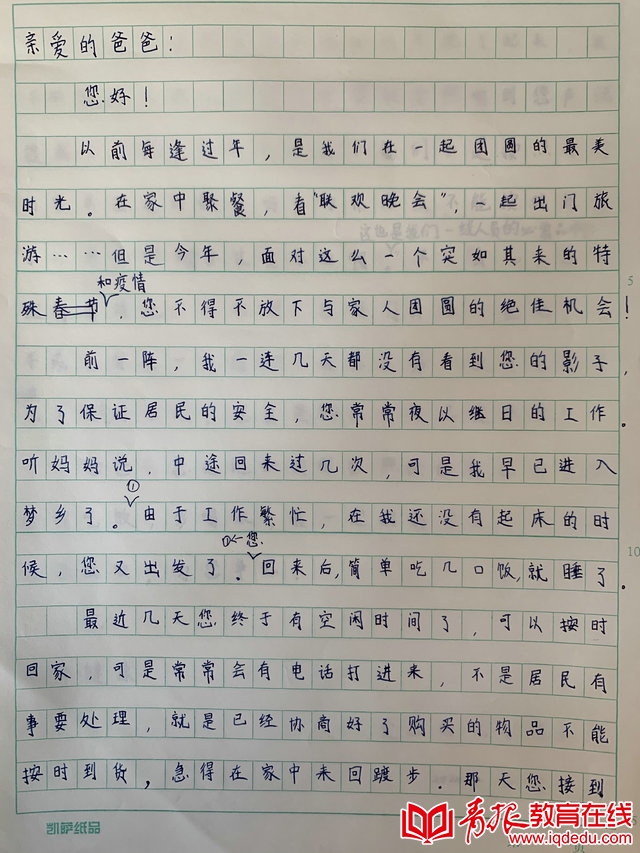 亲爱的爸爸：
您好！
以前每逢过年，是我们在一起团圆的最美
时光。在家中聚餐，看“联欢晚会”，一起出门旅
游……但是今年，面对这么一个突如其来的特
和疫情
殊春节，您不得不放下与家人团圆的绝佳机会！
5
前一阵，我一连几天都没有看到您的影子，
为了保证居民的安全，您常常夜以继日的工作。
听妈妈说，中途回来过几次，可是我早已进入
①
梦乡了。由于工作繁忙，在我还没有起床的时
①←您
候，您又出发了。回来后，简单吃几口饭，就睡了。
10
最近几天您终于有空闲时间了，可以按时
回家，可是常常会有电话打进来，不是居民有
事要处理，就是已经协商好了购买的物品不能
按时到货，急得在家中来回踱步。那天您接到
凯萨纸品
青报教育在线
www.iqdedu.com
页